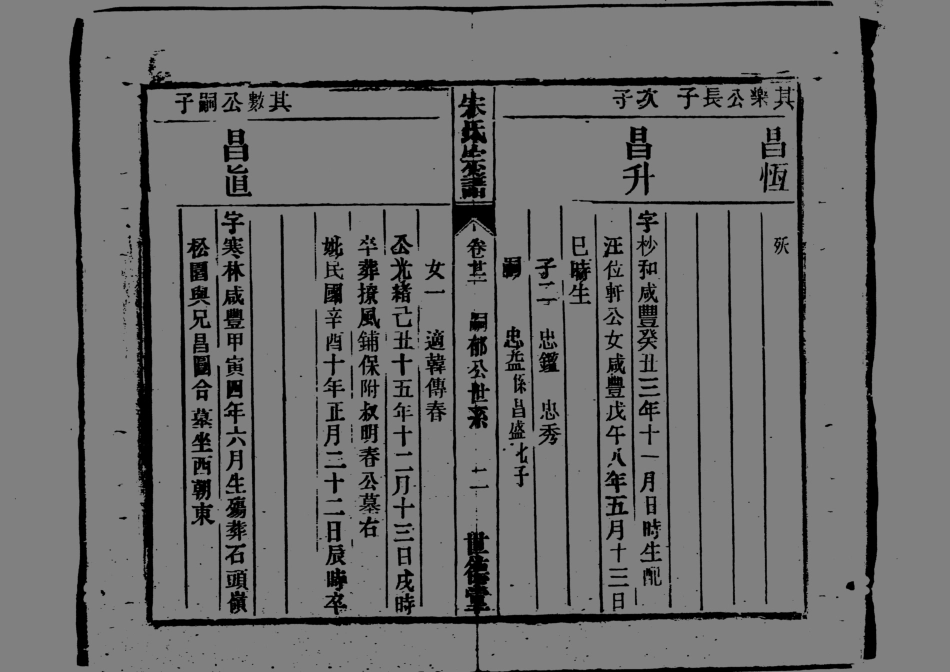 其樂公長子
次子
昌恆
殀
昌升
字杪和咸豐癸丑三年十一月日時生配
汪位軒公女咸豐戊午八年五月十三日
巳時生
子二 忠鑑 忠秀
嗣 忠益係昌盛七子
朱氏宗譜
卷廿三 嗣郁公世系 二
世德堂
女一 適韓傳春
公光緒己丑十五年十二月十三日戌時
卒葬撩風鋪保附叔明春公墓右
妣民國辛酉十年正月二十二日辰時卒
其數公嗣子
昌直
字寒林咸豐甲寅四年六月生殤葬石頭嶺
松園與兄昌園合墓坐西朝東